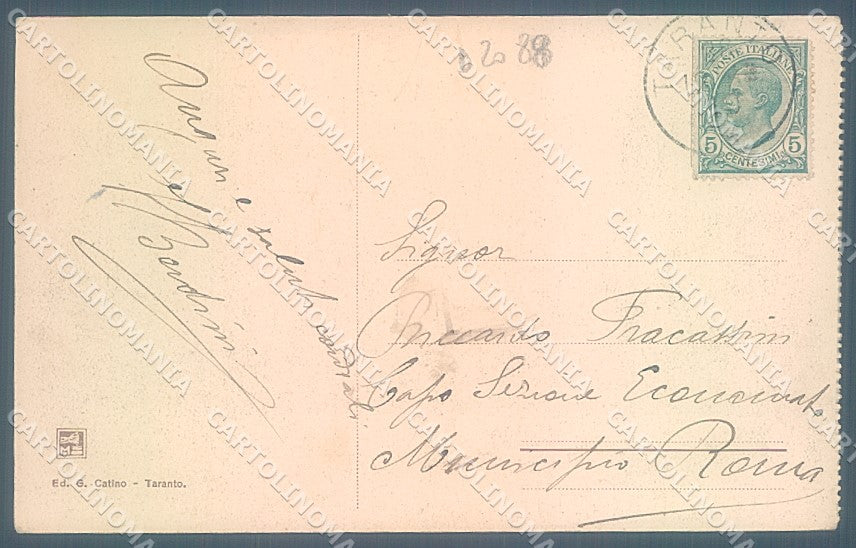 Auguri e saluti cordiali
Bandini
20 88
TARANTO
POSTE ITALIANE
5 5
CENTESIMI
Signor
Riccardo Fracassini
Capo Sezione Economato
Municipio Roma
Ed. G. Catino - Taranto.
CARTOLINOMANIA